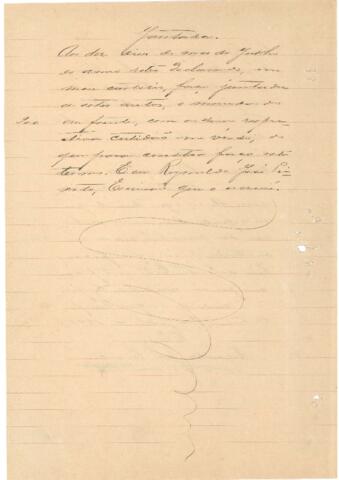 Juntada.
Aos dez dias do mes de Julho
do anno retro declarado, em
meu cartorio, faço juntada
a estes autos, o mandado
em frente, com o
certidão no verso; do
que para constar faço este
termo. Eu Reynaldo José Pi-
, Escrivão que o escrevi.